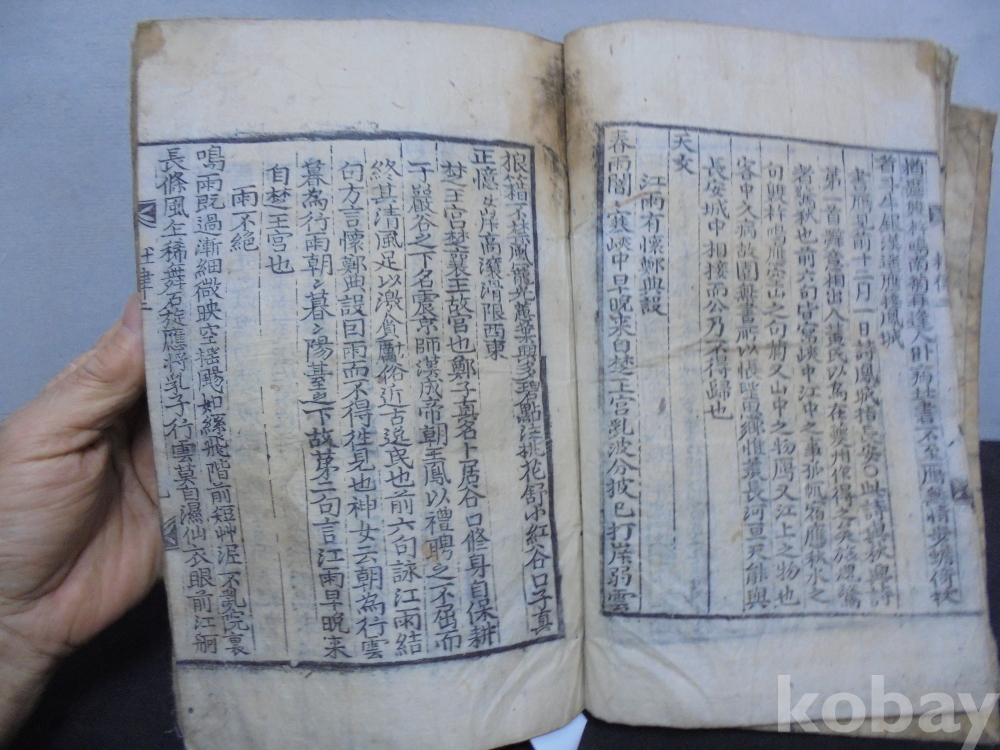 猶懸興杵鳴南菊再逢人卧病北書不至鴈無情步蟾倚杖
看斗牛銀漢遙應接鳳城
書鴈見前十二月一日詩鳳城指長安〇此詩與秋興詩
第一首辭意相出入黃氏以為在夔州作得之矣旅魂驚
者悲秋也前六句言峽中江中之事孤帆宿應秋水之
句興杵鳴應空山之句菊又山中之物鴈又江上之物也
客中久病故園無書所以悵望帝鄉惟羨長河亘天能與
長安城中相接而公乃不得歸也
天文
江雨有懷鄭典設
春雨闇〻寒峽中早晚來自楚王宮乳波分披已打岸弱雲
狼籍不禁風寵光蕙葉與多碧點注桃花舒小紅谷口子真
正憶汝岸高瀼滑限西東
楚王宮楚襄王故宮也鄭子真名卜居谷口修身自保耕
于巖谷之下名震京師漢成帝朝王鳳以禮聘之不屈而
終其清風足以激貪勵俗近古逸民也前六句詠江雨結
句方言懷鄭典設因雨而不得往見也神女云朝為行雲
暮為行雨朝〻暮〻陽基之下故第二句言江雨早晚来
自楚王宮也
雨不絶
鳴雨既過漸細微映空搖颺如絲飛階前短艸泥不亂院裏
長條風乍稀舞石旋應將乳子行雲莫自濕仙衣眼前江舸
杜律二
kobay